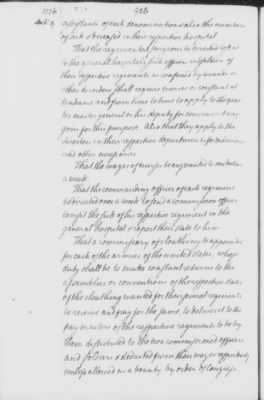 1776 926
Oct. 9 assistants of each denomination also the number
of sick & deceased in their respective hospital
That the regimental surgeons be directed to send
to the general hospitals such officers and soldiers of
their respective regiments as confined by wounds or
other disorders shall require nurses or constant at
tendance and from time to time to apply to the quar
ter master general or his deputy for convenient wag
gons for this purpose. Also that they apply to the
directors in their respective departments for medicines
and other necessaries
That the wages of nurses be augmented to one dollar
a week
That the commanding officer of each regiment
be directed once a week to send a commissioned officer
to visit the sick of his respective regiment in the
general hospital & report their state to him
That a commissary of cloathing be appointed
for each of the armies of the united states, whose
duty shall be to make constant returns to the
assemblies or conventions of the respective states
of the cloathing wanted for their several regiments
to receive and pay for the same, to deliver it to the
pay masters of the respective regiments to be by
them distributed to the non commissioned officers
and soldiers & deducted from their wages respectively
unless allowed as a bounty by order of Congress